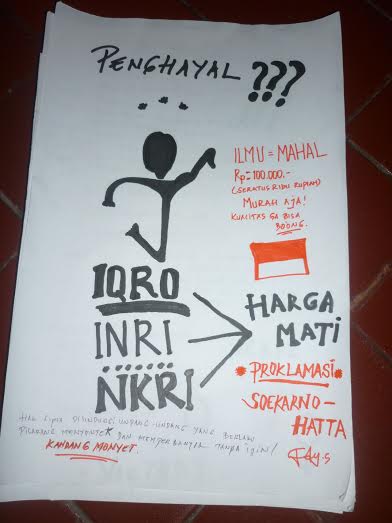 PENGHAYAL ???
ILMU = MAHAL
Rp = 100.000.-
(SERATUS RIBU RUPIAH)
MURAH AJA!
KUALITAS GA BISA
BOONG.
IQRO
INRI
NKRI
HARGA
MATI
* PROKLAMASI *
SOEKARNO -
HATTA
HAK CIPTA DILINDUNGI UNDANG-UNDANG YANG BERLAKU
DILARANG MENYONTEK DAN MEMPERBANYAK TANPA IJIN!
KANDANG MONYET.